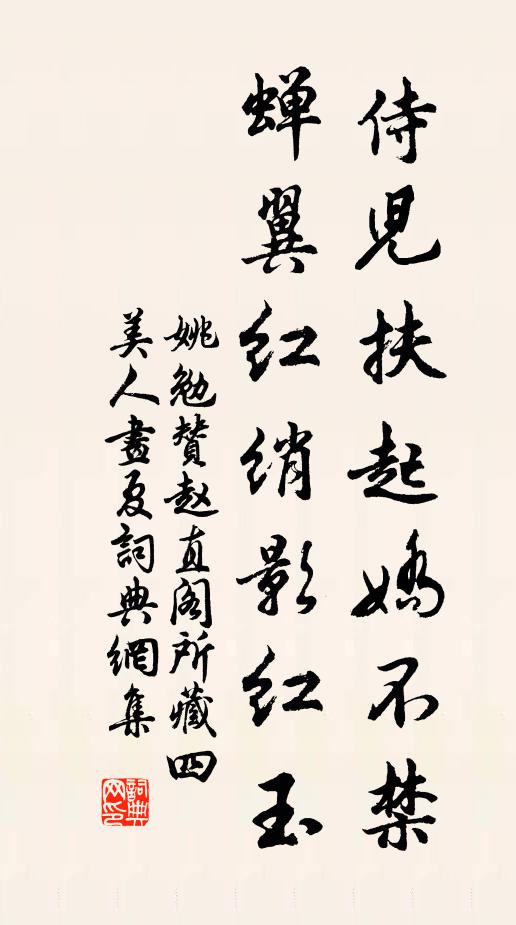 侍児扶起嬌不禁
蝉翼红绡影红玉
姚勉赞赵直阁所藏四
美人畫夏詞典網集
詞典网印